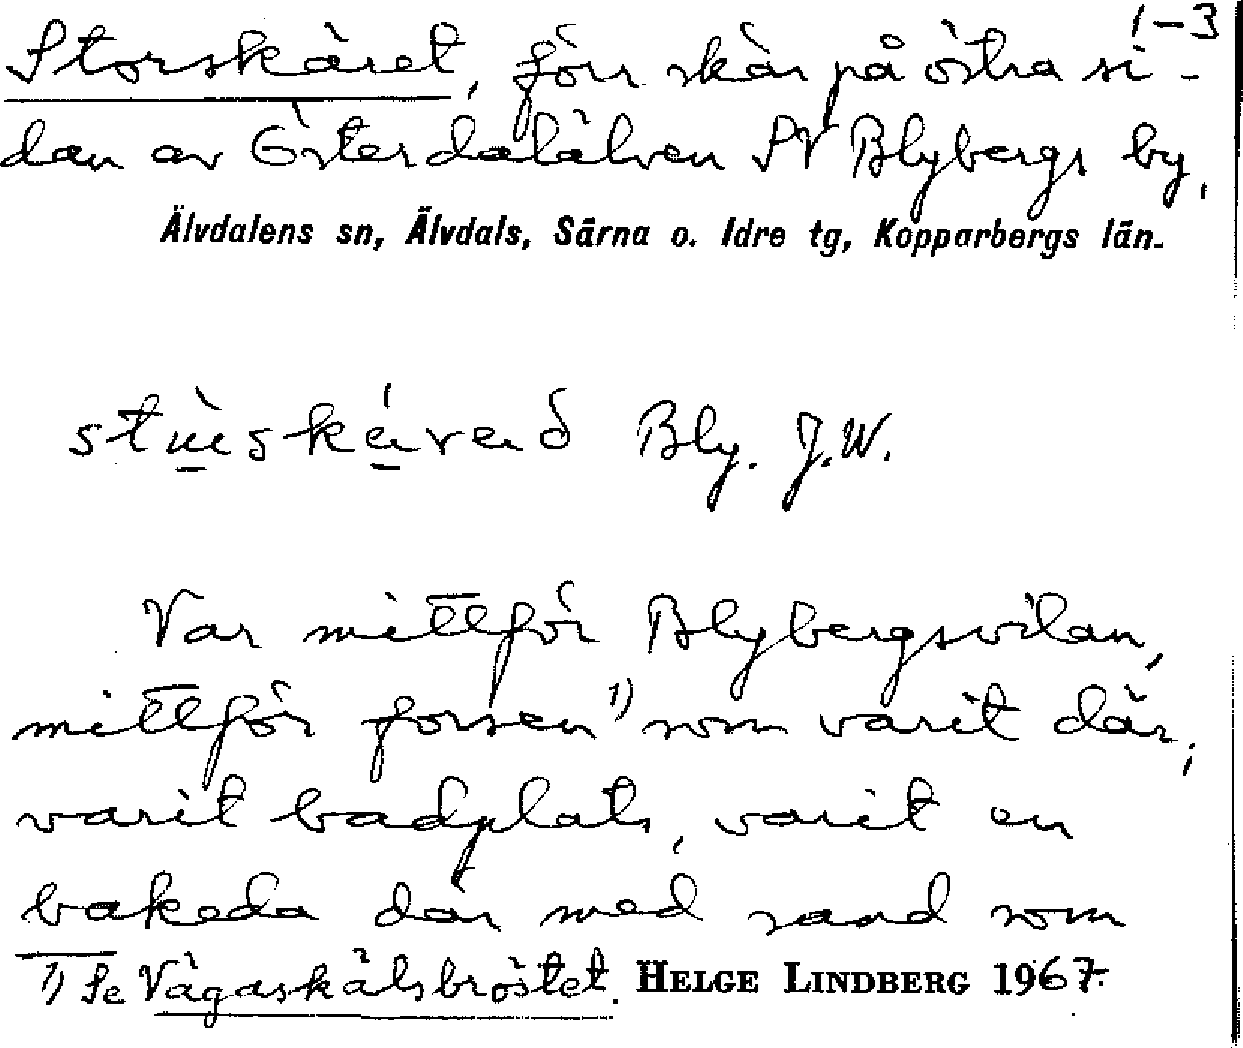 1-3
Storskäret, förr skär på östra si-
dan av Österdalälven SV Blybergs by,
Älvdalens sn, Älvdals, Särna o. Idre tg, Kopparbergs län.
Bly. J.W.
Var mittför Blybergsvilan,
mittför forsen 1) som varit där,
varit badplats, varit en
bakeda där med sand som
1) Se Vågaskålsbröstet. HELGE LINDBERG 1967